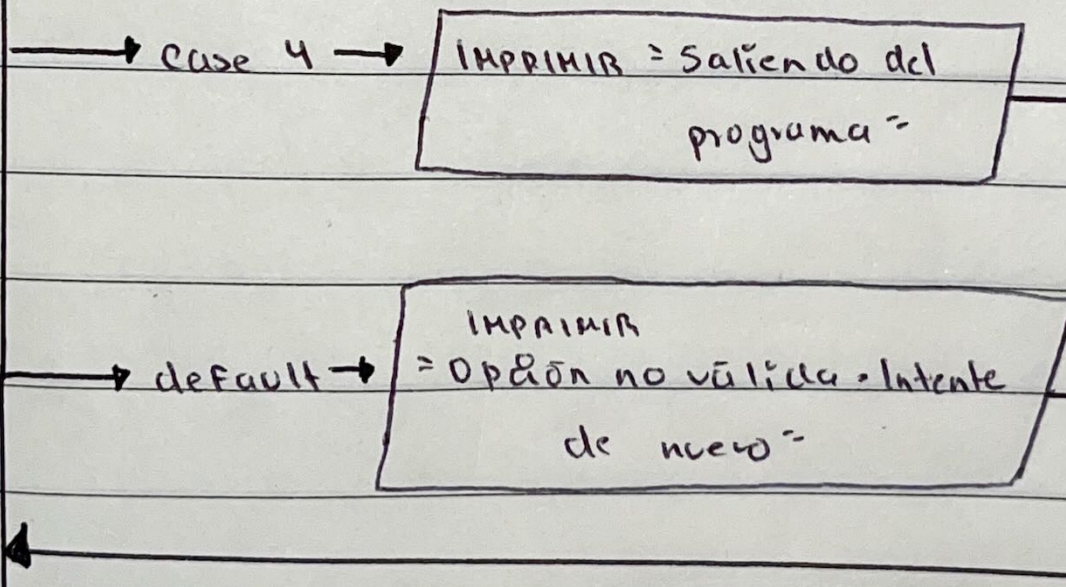 case 4
IMPRIMIR "Saliendo del
programa"
IMPRIMIR
default
"Opción no válida. Intente
de nuevo"